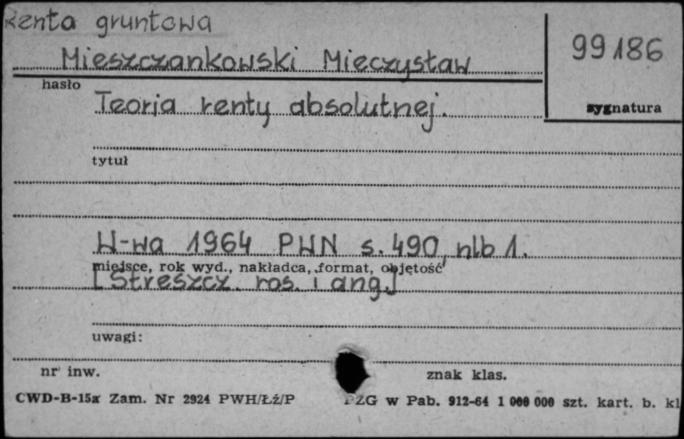 Renta gruntowa
Mieszczankowski Mieczysław
99186
hasło
sygnatura
Teoria renty absolutnej.
tytuł
W-wa 1964 PWN s. 490, nlb 1.
miejsce, rok wyd., nakładca, format, objętość
[Streszcz. ros. i ang.]
uwagi:
nr inw.
znak klas.
CWD-B-15a Zam. Nr 2924 PWH/Łź/P
PZG w Pab. 912-64 1 000 000 szt. kart. b. kl